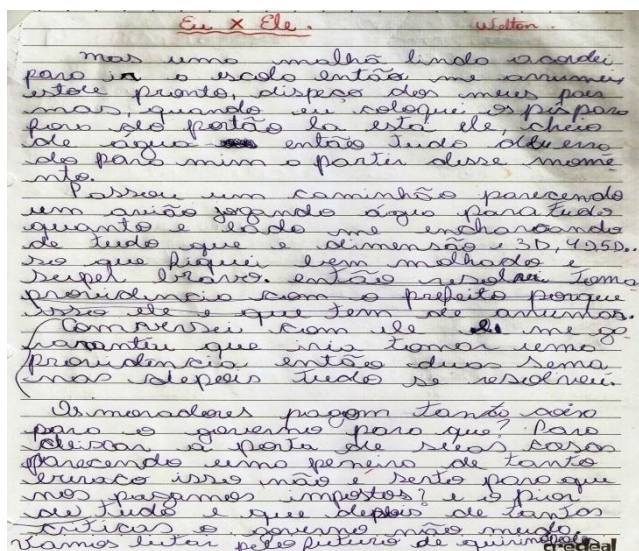 Eu x Ele. Welton.
mas uma malhã lindo acordei
para ir a escola então me arrumei
estole pronto, dispeço dos meus pais
mas, quando eu coloquei os pés para
fora do portão la esta ele, cheio
de agua então tudo deu erra
do para mim a partir desse mome
nto.
Passou um caminhão parecendo
um avião jogando água para tudo
quanto e lado me encharcando
de tudo que e dimensão e 3D, 4D, 5D..
so que fiquei bem molhado e
super bravo. então resolvi toma
providencia com o prefeito porque
isso ele e que tem de arrumar.
Comversei com ele me ga
rantiu que iria tomar uma
providencia então duas sema
nas depois tudo se resolveu.
Os moradores pagam tanto
para o governo para que? Para
deixar a porta de suas casas
parecendo uma peneira de tanto
buraco isso não e serto para que
nos pagamos impostos? e o pior
de tudo e que depois de tantas
criticas o governo não muda
Vamos lutar pelo futuro de quirinópolis
credeal